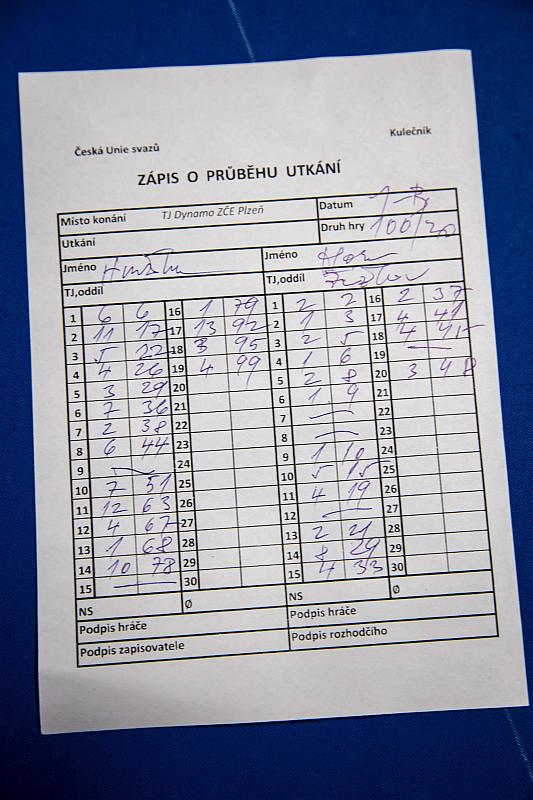 Česká Unie svazů
Kulečník
ZÁPIS O PRŮBĚHU UTKÁNÍ
Místo konání TJ Dynamo ZČE Plzeň Datum
Utkání Druh hry 100/20
Jméno Jméno
TJ,oddíl TJ,oddíl
1 6 6 16 1 79 1 2 2 16 2 37
2 11 17 17 13 92 2 1 3 17 4 41
3 5 22 18 3 95 3 2 5 18 4 45
4 4 26 19 4 99 4 1 6 19 —
5 3 29 20 5 2 8 20 3 48
6 7 36 21 6 1 9 21
7 2 38 22 7 — 22
8 6 44 23 8 — 23
9 — 24 9 1 10 24
10 7 51 25 10 5 15 25
11 12 63 26 11 4 19 26
12 4 67 27 12 — 27
13 1 68 28 13 2 21 28
14 10 78 29 14 8 29 29
15 — 30 15 4 33 30
NS Ø NS Ø
Podpis hráče Podpis hráče
Podpis zapisovatele Podpis rozhodčího